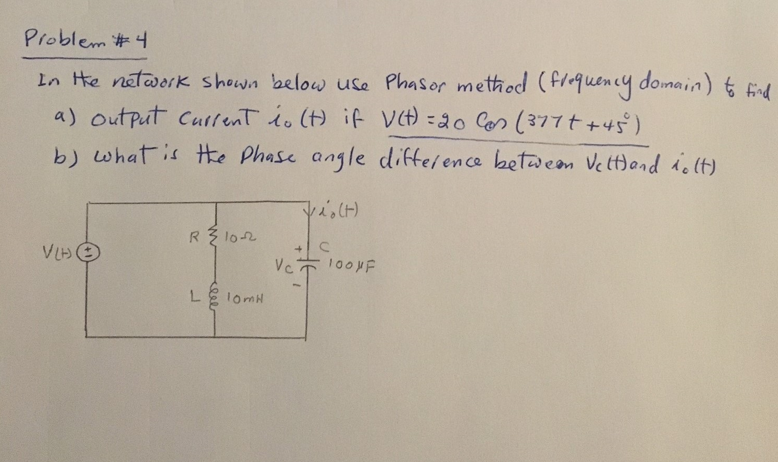 Problem #4
In the network shown below use Phasor method (frequency domain) to find
a) output current i₀(t) if V(t) = 20 Cos (377t + 45°)
b) what is the phase angle difference between Vc(t) and i₀(t)
i₀(t)
R 10Ω
V(t) + -
+ C
Vc 100μF
-
L 10mH